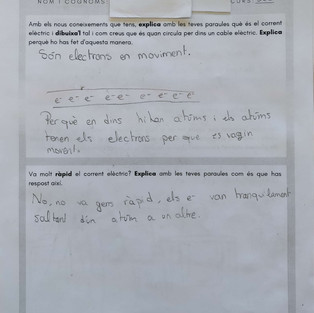 NOM I COGNOMS:
CURS:
Amb els nous coneixements que tens, explica amb les teves paraules què és el corrent
elèctric i dibuixa'l tal i com creus que és quan circula per dins un cable elèctric. Explica
perquè ho has fet d'aquesta manera.
Són electrons en moviment.
e⁻ e⁻ e e⁻ e⁻ e⁻ e⁻ e⁻ e⁻
Per què en dins hi han atòms i els atòms
tenen els electrons per que es vagin
movent.
Va molt ràpid el corrent elèctric? Explica amb les teves paraules com és que has
respost així.
No, no va gens ràpid, els e⁻ van tranquilament
saltant d'un atòm a un altre.